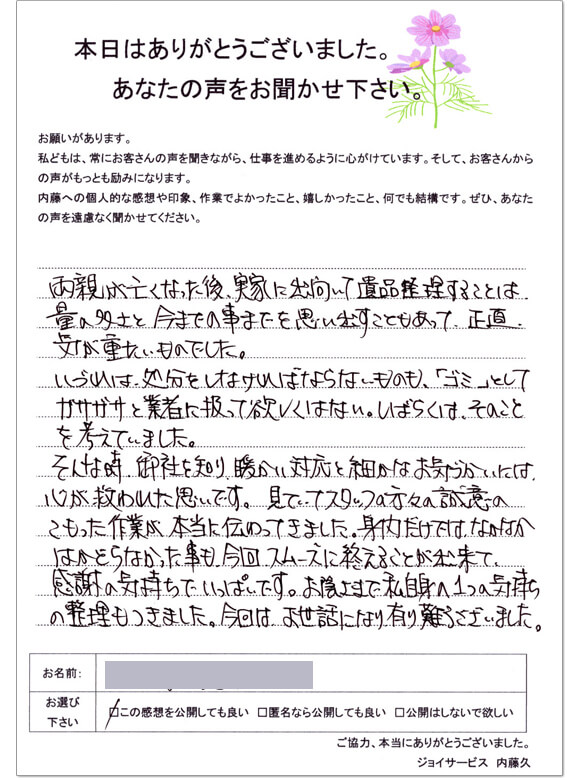 本日はありがとうございました。
あなたの声をお聞かせ下さい。
お願いがあります。
私どもは、常にお客さんの声を聞きながら、仕事を進めるように心がけています。そして、お客さんから
の声がもっとも励みになります。
内藤への個人的な感想や印象、作業でよかったこと、嬉しかったこと、何でも結構です。ぜひ、あなた
の声を遠慮なく聞かせてください。
両親が亡くなった後、実家に出向いて遺品整理することは
量の多さと今までの事までを思い出すこともあって、正直、
気が重たいものでした。
いづれは、処分をしなければならないものも、「ゴミ」として
ガサガサと業者に扱って欲しくはない。しばらくは、そのこと
を考えていました。
そんな時、御社を知り、暖かい対応と細かなお気づかいには、
心が救われた思いです。見ていてスタッフの方々の誠意の
こもった作業が、本当に伝わってきました。身内だけではなかなか
はかどらなかった事も、今回スムーズに終えることが出来て、
感謝の気持ちでいっぱいです。お陰さまで私自身の1つの気持ち
の整理もつきました。今回は、お世話になり有り難うございました。
お名前:
お選び
下さい
□この感想を公開しても良い □匿名なら公開しても良い □公開はしないで欲しい
ご協力、本当にありがとうございました。
ジョイサービス 内藤久